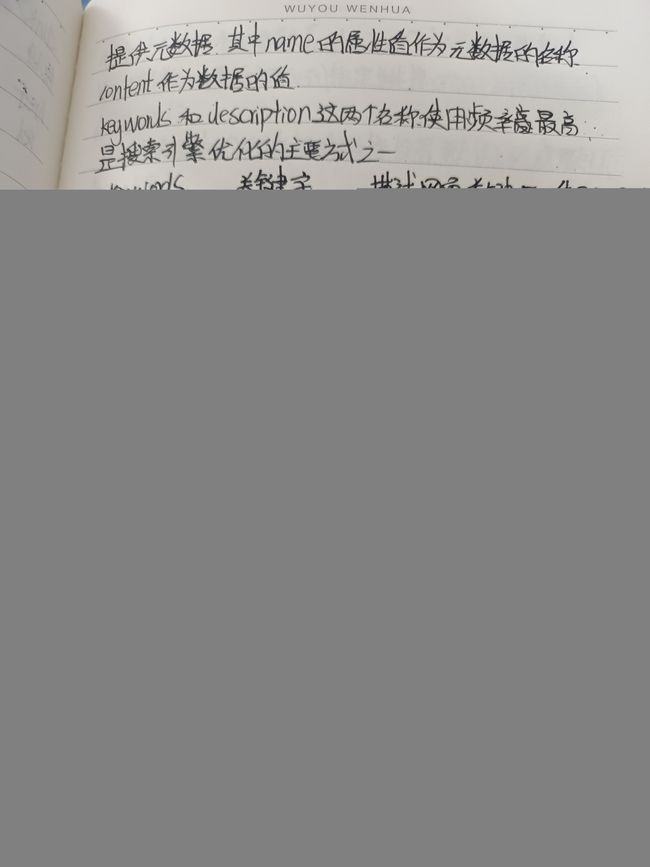 WUYOU WENHUA
提供元数据.其中name的属性值作为元数据的名称.
content作为数据的值.
keywords和description这两个名称使用频率最高
是搜索引擎优化的主要方式之一
keywords 关键字